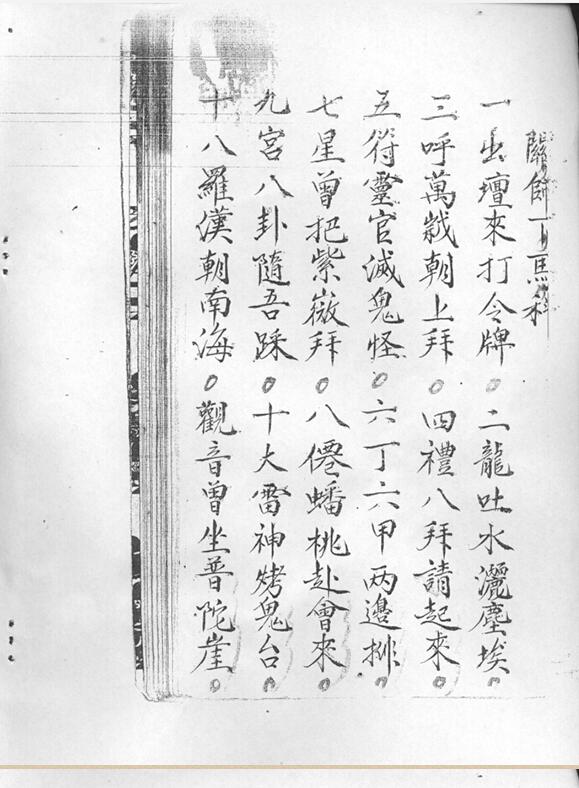 下馬科
一出壇來打令牌。二龍吐水灑塵埃。
三呼萬歲朝上拜。四禮八拜請起來。
五符靈官滅鬼怪。六丁六甲两邊排。
七星曾把紫微拜。八僊蟠桃赴會來。
九宮八卦隨吾踩。十大雷神烤鬼台。
十八羅漢朝南海。觀音曾坐普陀崖。